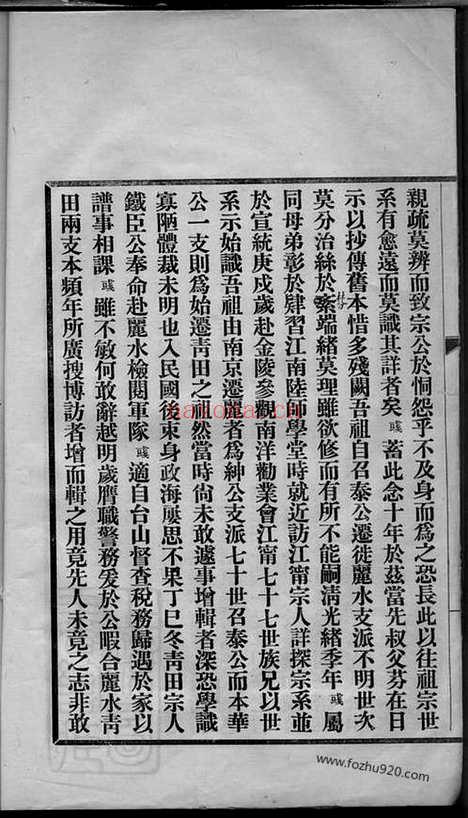 親疏莫辨而致宗公於恫怨乎不及身而為之恐長此以往祖宗世
系有愈遠而莫識其詳者矣彧蓄此念十年於茲當先叔父芬在日
示以抄傳舊本惜多殘闕吾祖自召泰公遷徙麗水支派不明世次
莫分治絲於紊端緒莫理雖欲修而有所不能嗣淸光緒季年彧屬
同母弟彰於肄習江南陸師學堂時就近訪江甯宗人詳探宗系並
於宣統庚戌歲赴金陵參觀南洋勸業會江甯七十七世族兄以世
系示始識吾祖由南京遷麗者為紳公支派七十世召泰公而本華
公一支則為始遷靑田之祖然當時尙未敢遽事增輯者深恐學識
寡陋體裁未明也入民國後束身政海屢思不果丁巳冬靑田宗人
鐵臣公奉命赴麗水檢閱軍隊彧適自台山督查稅務歸遇於家以
譜事相課彧雖不敏何敢辭越明歲膺職警務爰於公暇合麗水靑
田兩支本頻年所廣搜博訪者增而輯之用竟先人未竟之志非敢
www.fozhu920.com